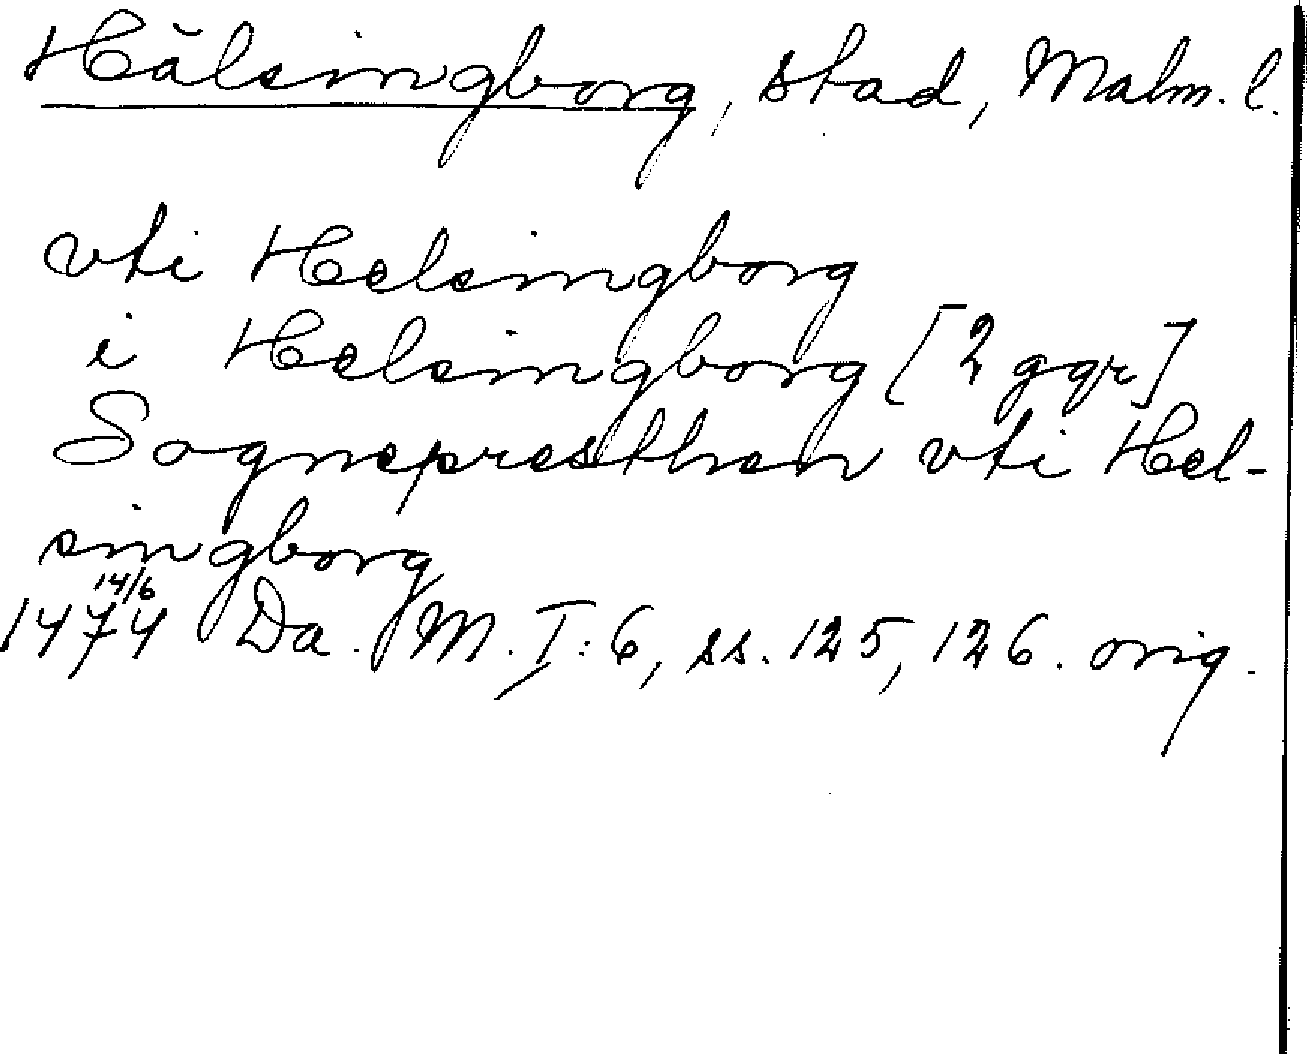 Hälsingborg, stad, Malm. l.
vti Helsingborg
i Helsingborg [2 ggr]
Sognepresthen vti Hel-
singborg
14/6
1474 Da. M. I: 6, ss. 125, 126. orig.